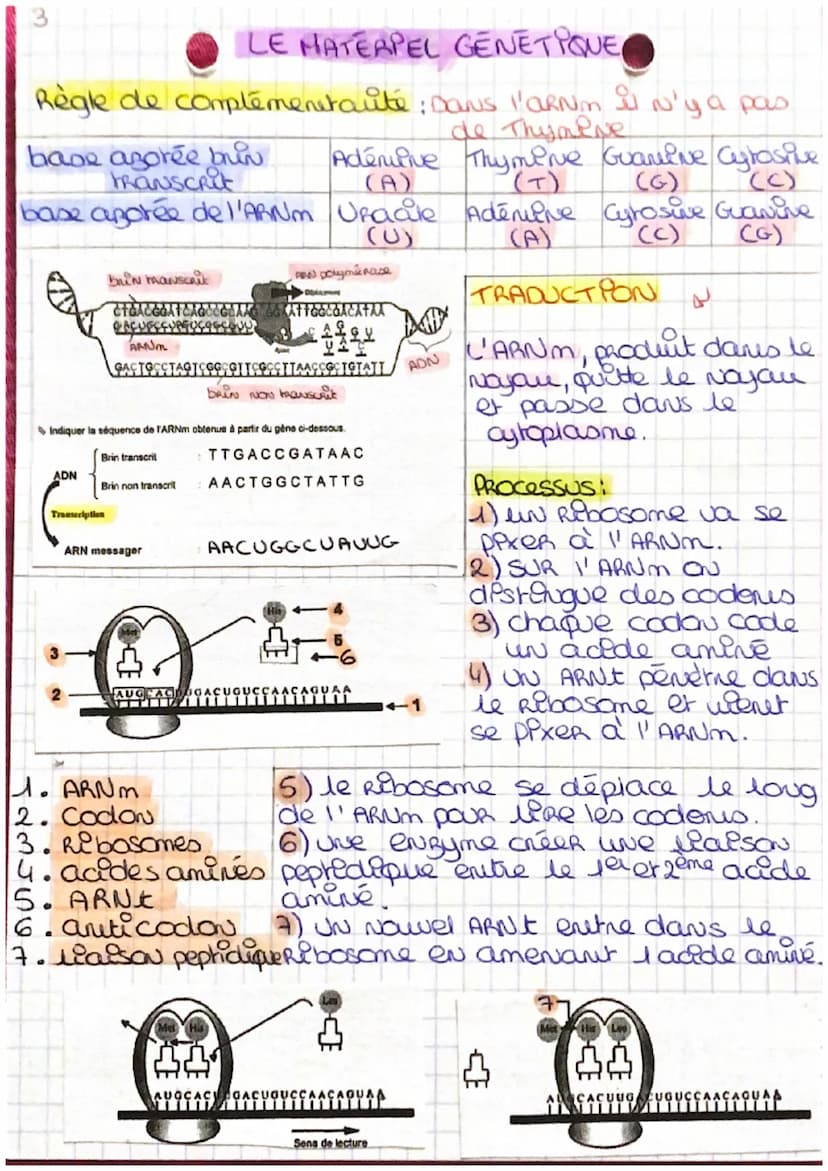 3
LE MATÉRIEL GÉNÉTIQUE
Règle de complémentarité : Dans l'ARNm il n'y a pas
de Thymine
base azotée brin transcrit | Adénine (A) | Thymine (T) | Guanine (G) | Cytosine (C)
base azotée de l'ARNm | Uracile (U) | Adénine (A) | Cytosine (C) | Guanine (G)
brin transcrit
ARN polymérase
ARNm
GACTGCCTAGTCGGCGTTCGCCTTAACCGCTGTATT
ADN
brin non transcrit
Indiquer la séquence de l'ARNm obtenue à partir du gène ci-dessous.
ADN
Brin transcrit : TTGACCGATAAC
Brin non transcrit : AACTGGCTATTG
Transcription
ARN messager AACUGGCUAUUG
TRADUCTION
L'ARNm, produit dans le
noyau, quitte le noyau
et passe dans le
cytoplasme.
PROCESSUS :
1) un Ribosome va se
fixer à l'ARNm.
2) sur l'ARNm on
distingue des codons
3) chaque codon code
un acide aminé
4) un ARNt pénètre dans
le Ribosome et vient
se fixer à l'ARNm.
Met
His
4
5
6
3
2
AUGCACUUGACUGUCCAACAGUAA
1
1. ARNm
2. Codon
3. Ribosomes
4. acides aminés
5. ARNt
6. anticodon
7. liaison peptidique
5) le Ribosome se déplace le long
de l'ARNm pour lire les codons.
6) une enzyme créer une liaison
peptidique entre le 1er et 2ème acide
aminé.
7) un nouvel ARNt entre dans le
Ribosome en amenant l'acide aminé.
Met His
Leu
AUGCACU GACUGUCCAACAGUAA
Sens de lecture
7
Met His Leu
CACUUG CUGUCCAACAGUAA